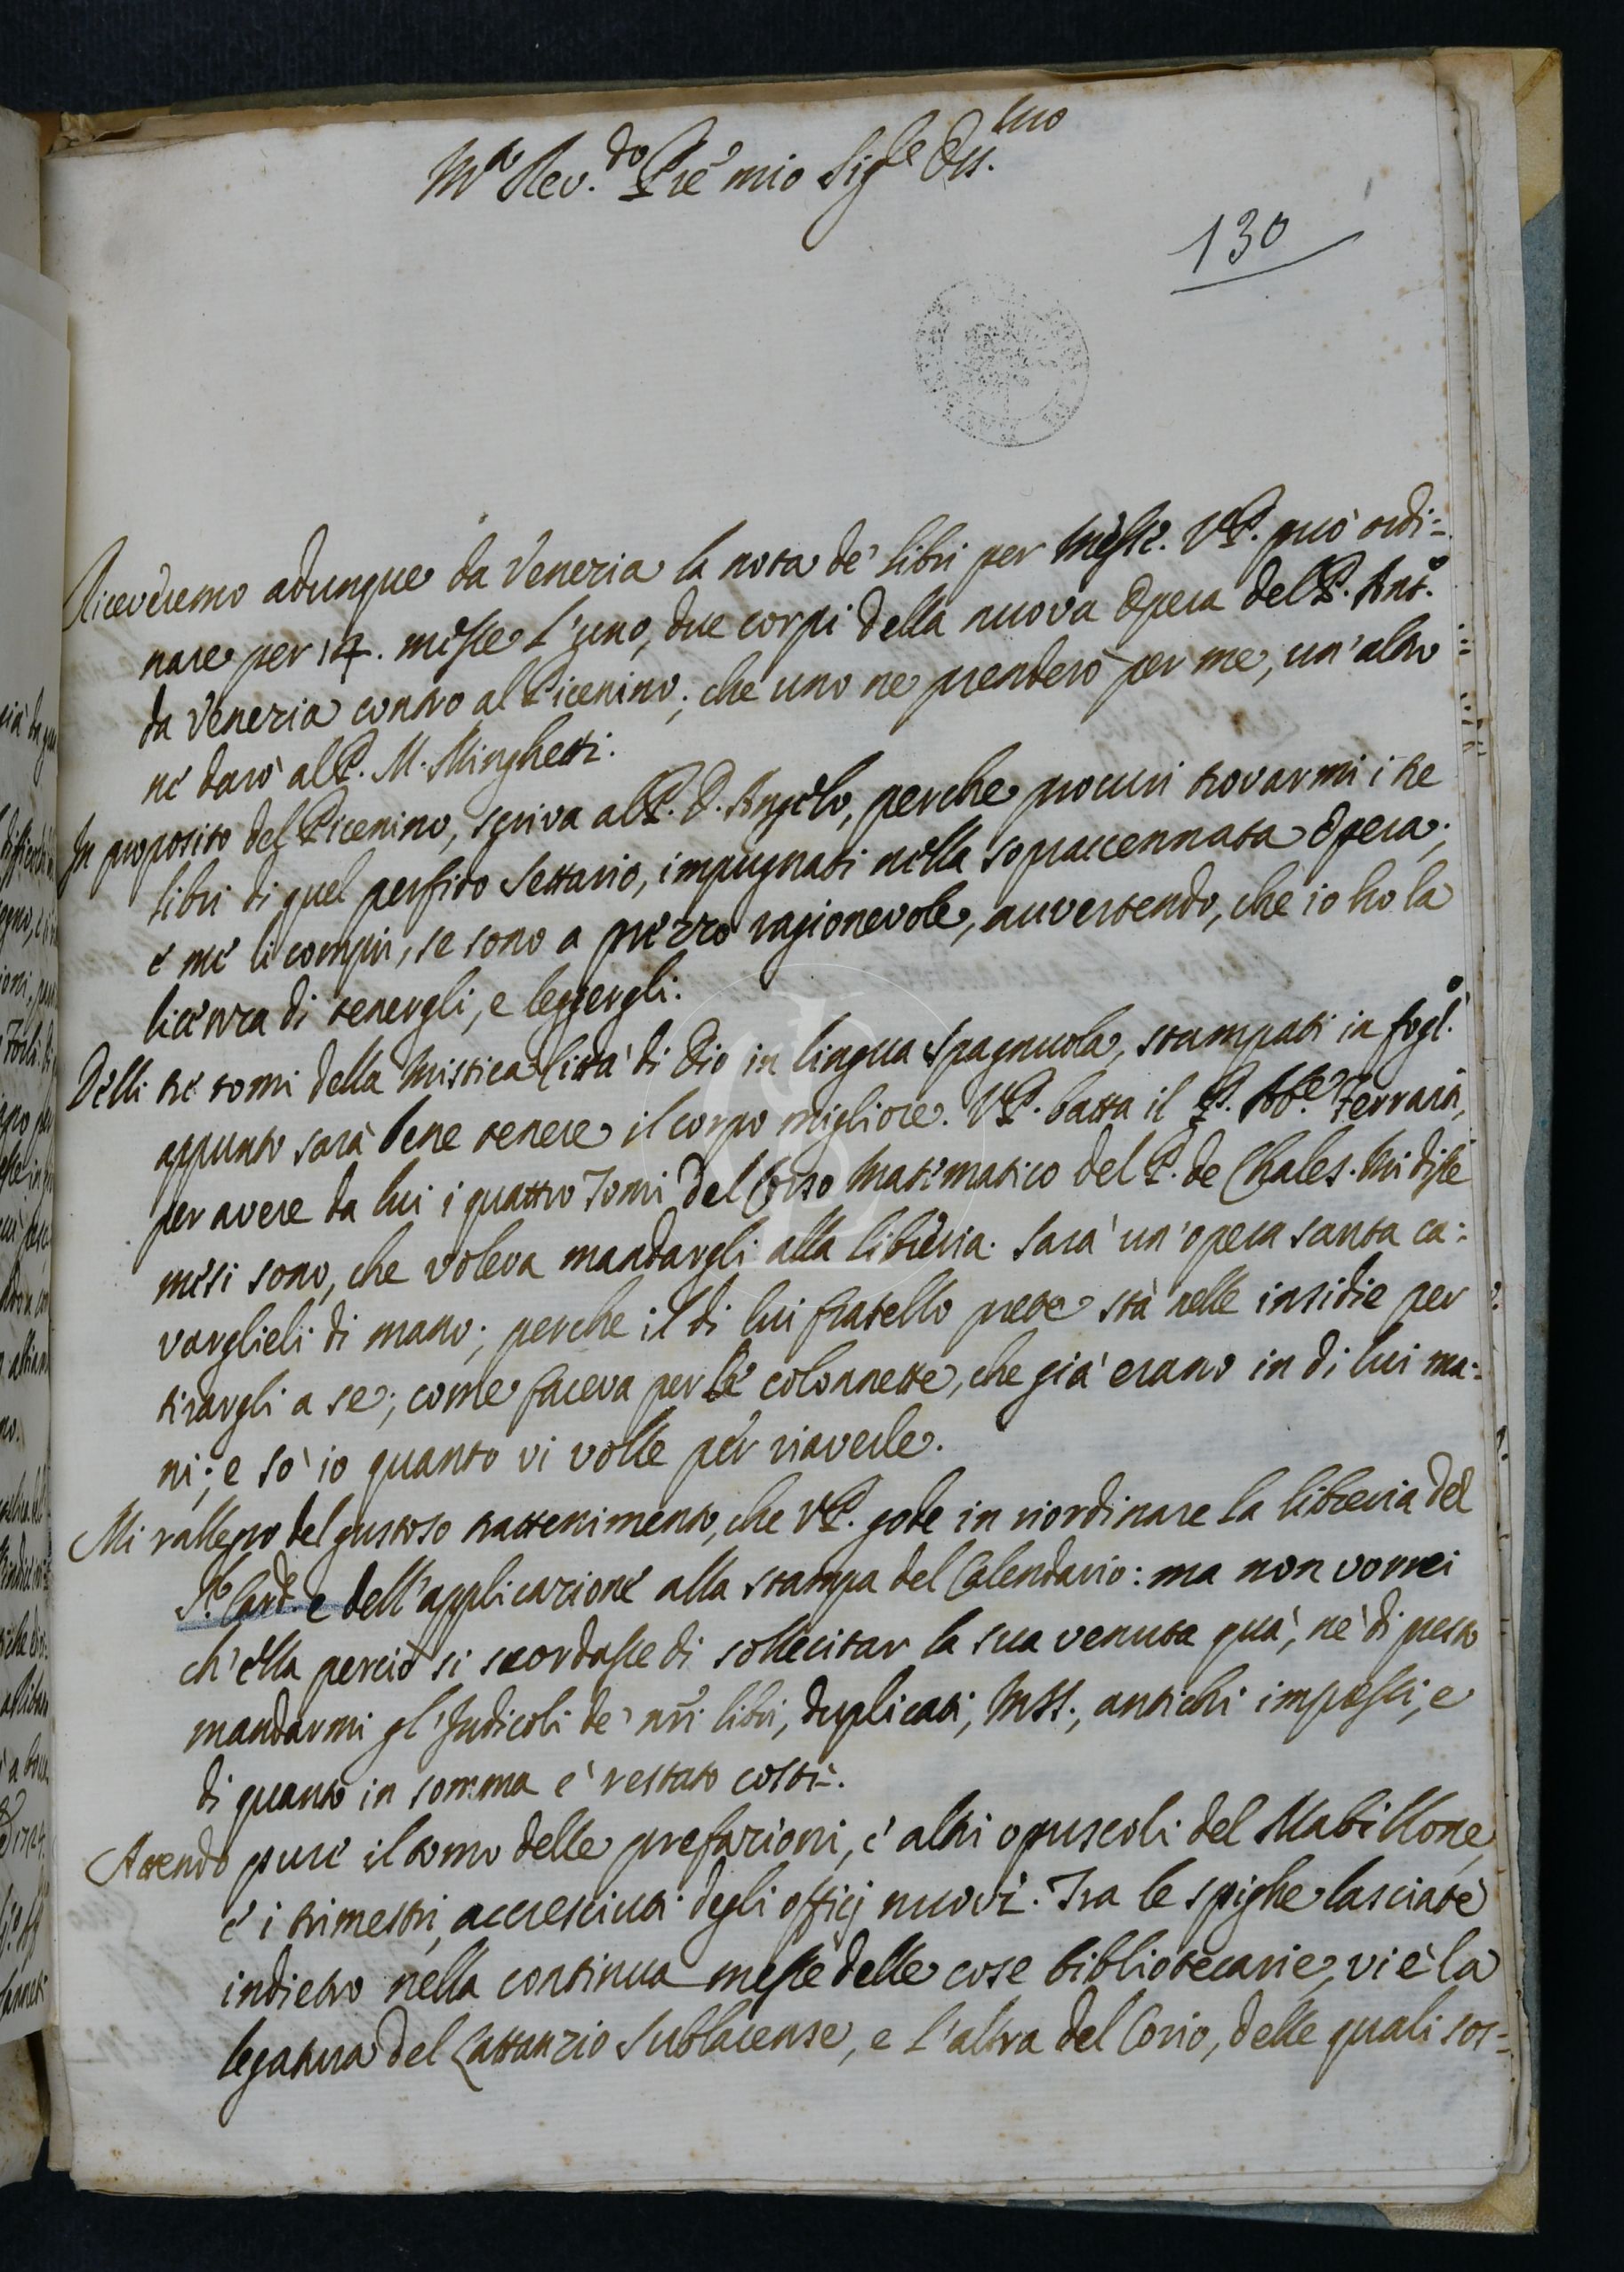 M.o Rev.do Pre mio Sig.re Oss.mo
130
Riceveremo adunque da Venezia la nota de' libri per Messe. V.P. può ordi=
nare per 14. messe l'uno, due corpi della nuova Opera del P. Ant.o
da Venezia contro al Picenino; che uno ne prenderò per me, un'altro
ne darò al P. M. Minghetti.
In proposito del Picenino, scriva al P. D. Angelo, perche procuri trovarmi i tre
libri di quel perfido Settario, impugnati nella sopraccennata Opera;
e me li compri, se sono a prezzo ragionevole, avvertendo, che io ho la
licenza di tenergli, e leggergli.
Delli tre tomi della Mistica Città di Dio in lingua Spagnuola, stampati in fogl.o
appunto sarà bene tenere il corpo migliore. V.P. batta il P. Abb.e Ferrari,
per avere da lui i quattro Tomi del Corso Matematico del P. de Chales. Mi disse
mesi sono, che voleva mandargli alla libreria. Sarà un'opera santa ca=
varglieli di mano; perche il di lui fratello prete stà nelle insidie per
tirargli a se; come faceva per le colonnette, che già erano in di lui ma=
ni; e sò io quanto vi volle per riaverle.
Mi rallegro del gustoso trattenimento, che V.P. gode in riordinare la libreria del
S.r Card. e dell'applicazione alla stampa del Calendario: ma non vorrei
ch'ella perciò si scordasse di sollecitar la sua venuta quà, nè di presto
mandarmi gl'Indicoli de' nri libri, duplicati, MSS., antichi impressi, e
di quanto in somma è restato costì.
Attendo pure il tomo delle prefazioni, e altri opuscoli del Mabillone,
e i trimestri, accresciuti degli officj nuovi. Tra le spighe lasciate
indietro nella continua messe delle cose bibliotecarie, vi è la
legatura del Lattanzio Sublacense, e l'altra del Corio, delle quali sos=